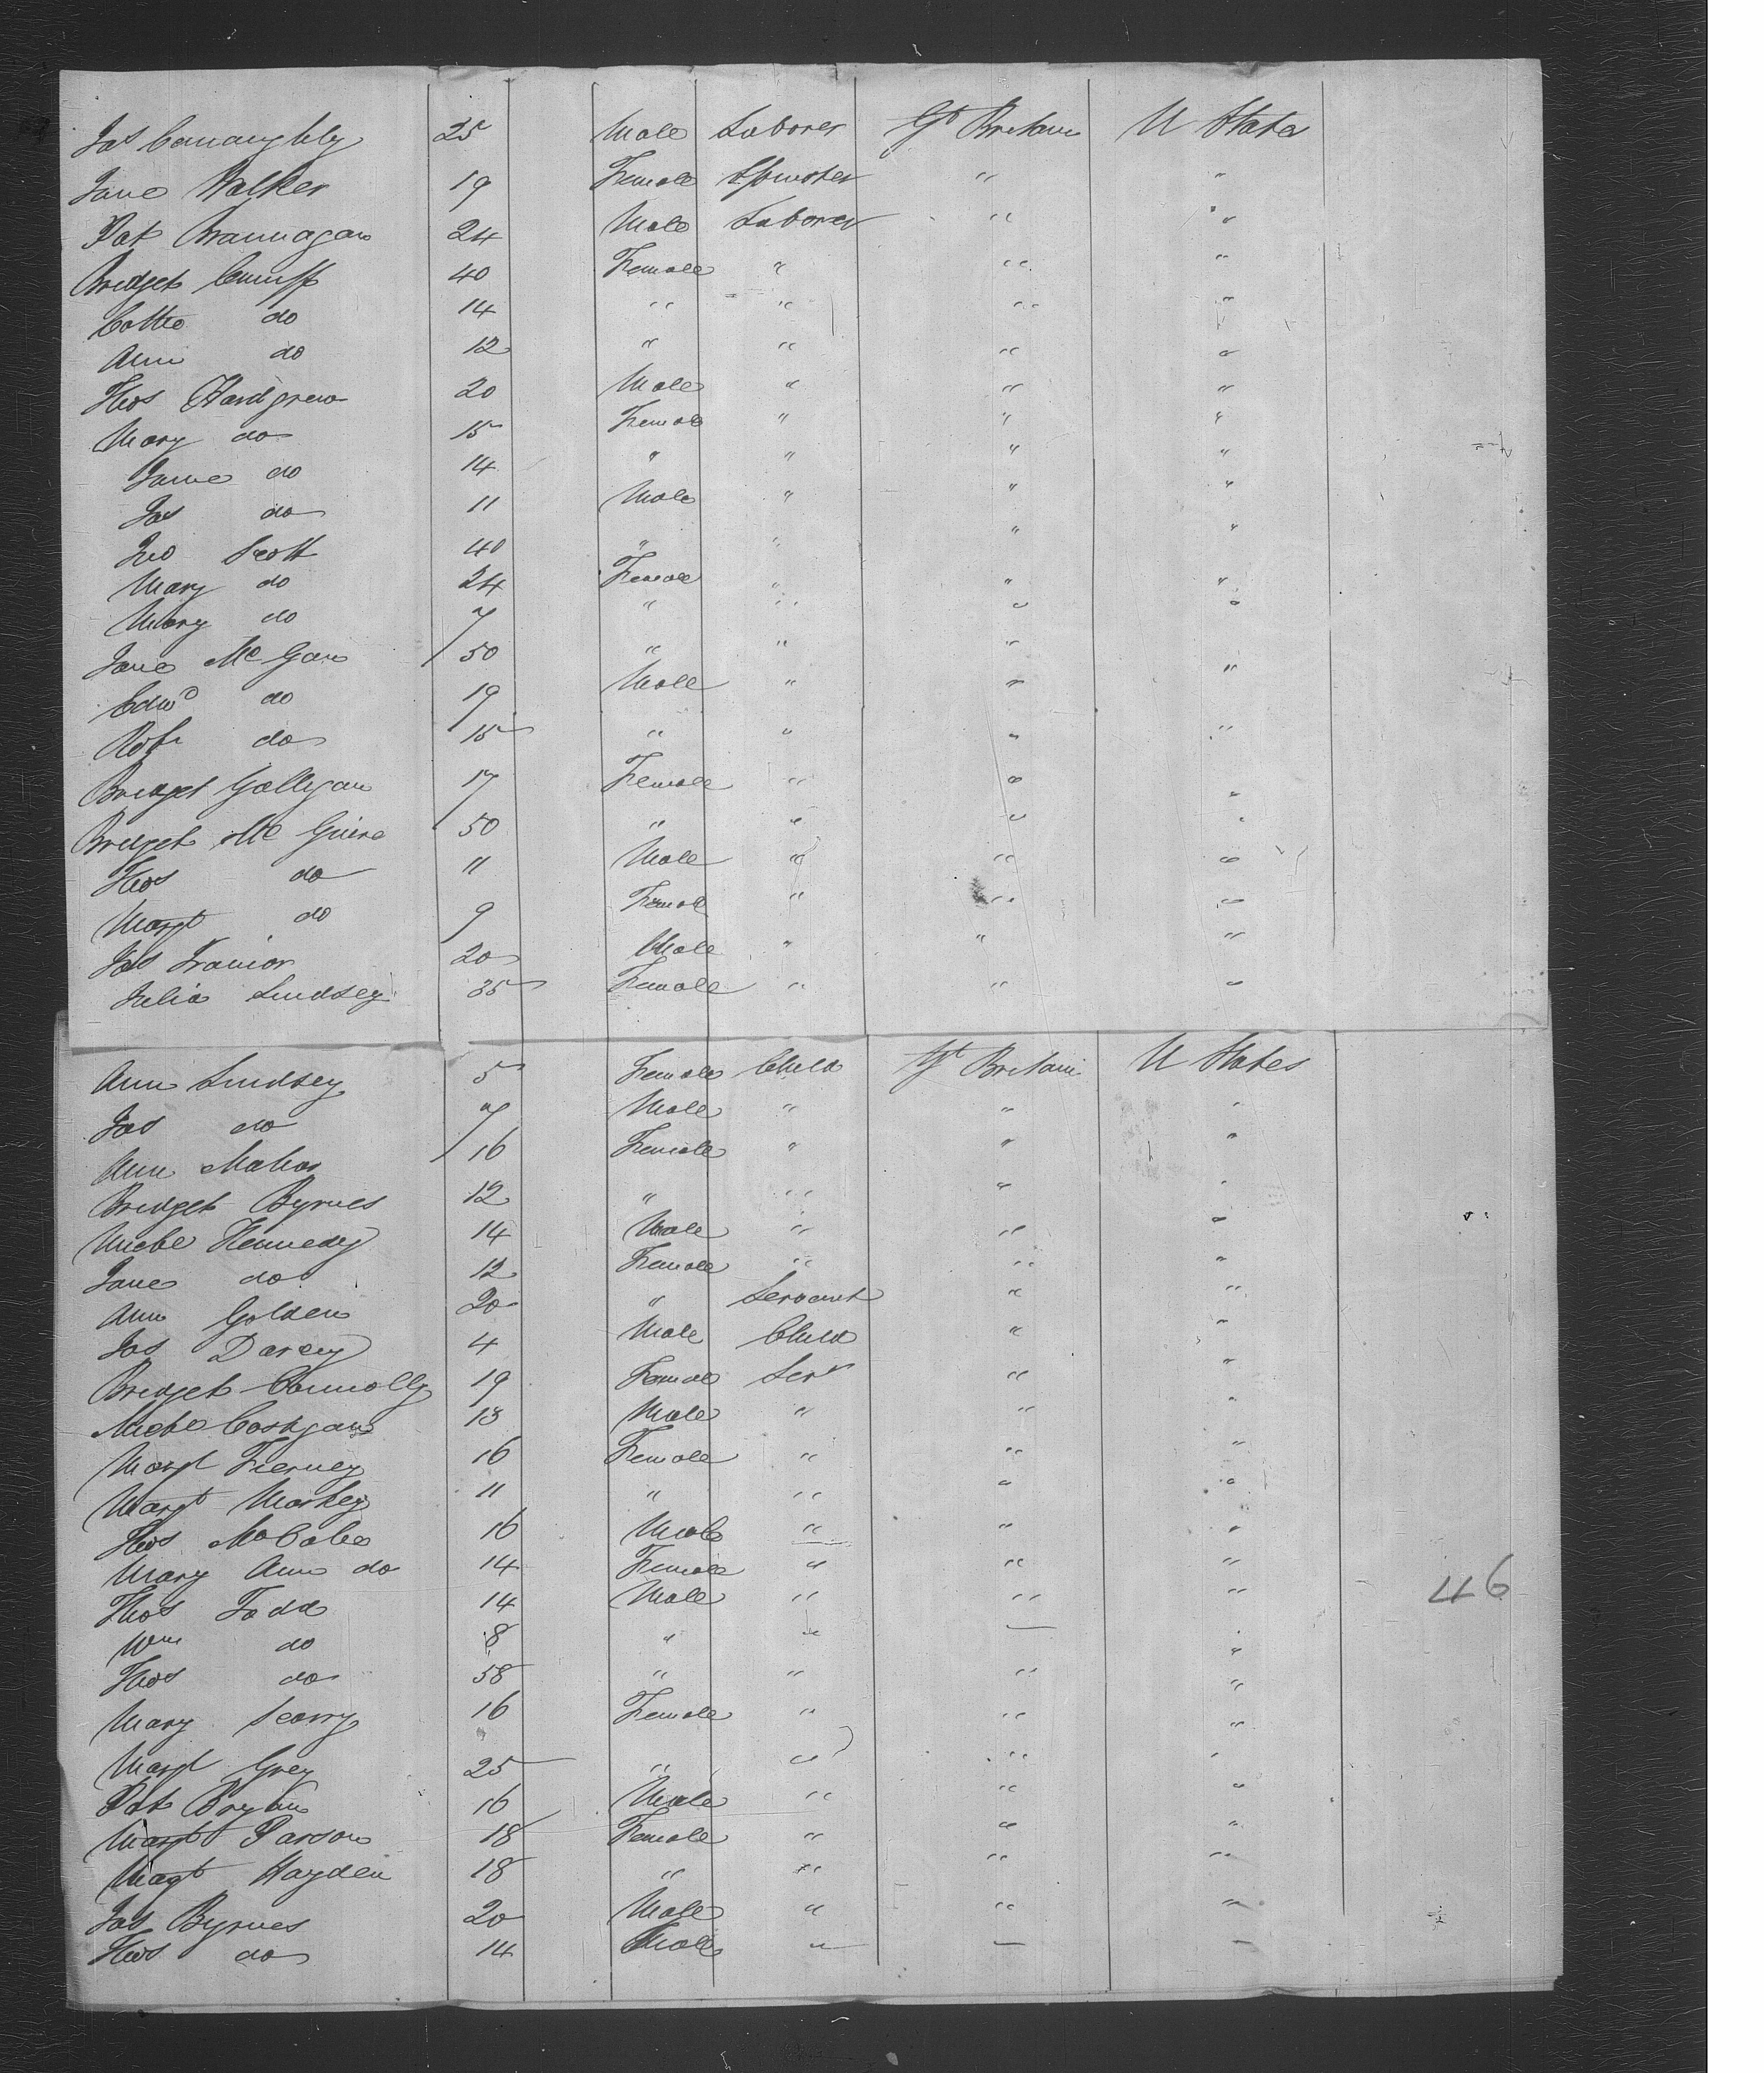 Jas Conaughty 25 Male Laborer Gt Britain U States
Jane Walker 19 Female Spinster " "
Pat Brannagan 24 Male Laborer " "
Bridget Cunuff 40 Female " " "
Cathe do 14 " " " "
Ann do 12 " " " "
Thos Hardgrew 20 Male " " "
Mary do 15 Female " " "
Jane do 14 " " " "
Jas do 11 Male " " "
Jno Scott 40 " " " "
Mary do 24 Female " " "
Mary do 7 " " " "
Jane Mc Gan 50 " " " "
Edwd do 19 Male " " "
Robt do 15 " " " "
Bridget Galligan 17 Female " " "
Bridget Mc Guire 50 " " " "
Thos do 11 Male " " "
Margt do 9 Female " " "
Jas Trainor 20 Male " " "
Julia Lindsey 35 Female " " "
Ann Lindsey 5 Female Child Gt Britain U States
Jas do 7 Male " " "
Ann Mahon 16 Female " " "
Bridget Byrnes 12 " " " "
Michl Kennedy 14 Male " " "
Jane do 12 Female " " "
Ann Golden 20 " Servant " "
Jas Darcey 4 Male Child " "
Bridget Connolly 19 Female Servt " "
Michl Coskgan 13 Male " " "
Margt Tierney 16 Female " " "
Margt Markey 11 " " " "
Thos McCabe 16 Male " " "
Mary Ann do 14 Female " " "
Thos Todd 14 Male " " "
Wm do 8 " " " "
Thos do 58 " " " "
Mary Scorry 16 Female " " "
Margt Grey 25 " " " "
Pat Bryan 16 Male " " "
Margt Parson 18 Female " " "
Magt Hayden 18 " " " "
Jas Byrnes 20 Male " " "
Thos do 14 Male " " "
46